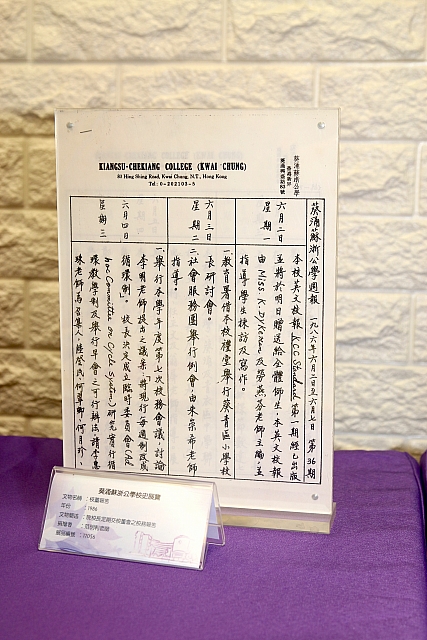 KIANGSU-CHEKIANG COLLEGE (KWAI CHUNG)
80 Hing Shing Road, Kwai Chung, N.T., Hong Kong
Tel: 0-202103-5
葵涌蘇浙公學
香港新界
葵涌興盛路80號
葵涌蘇浙公學週報 一九八六年六月二日至六月七日 第36期
六月二日
星期一
本校英文校報 KCC Standard 第一期經已出版
並將於明日贈送給全體師生。本英文校報
由 Miss K. Dykeman 及勞燕芬老師主編,並
指導學生採訪及寫作。
六月三日
星期二
一教育署借本校禮堂舉行葵青區小學校
長研討會。
二社會服務團舉行例會,由朱宗希老師
指導。
六月四日
星期三
一舉行本學年度第七次校務會議,討論
李明老師提出之議案「將現行每週制改成
循環制」。校長決定成立臨時委員會(Ad
hoc Committee on Cycle System)研究實行循
環教學制及舉行早會之可行辦法請李惠
老師為召集人,
葵涌蘇浙公學校史展覽
文物名稱 :校董報告
年份 :1986
文物簡述 :
捐贈者 :
展品編號 :12056